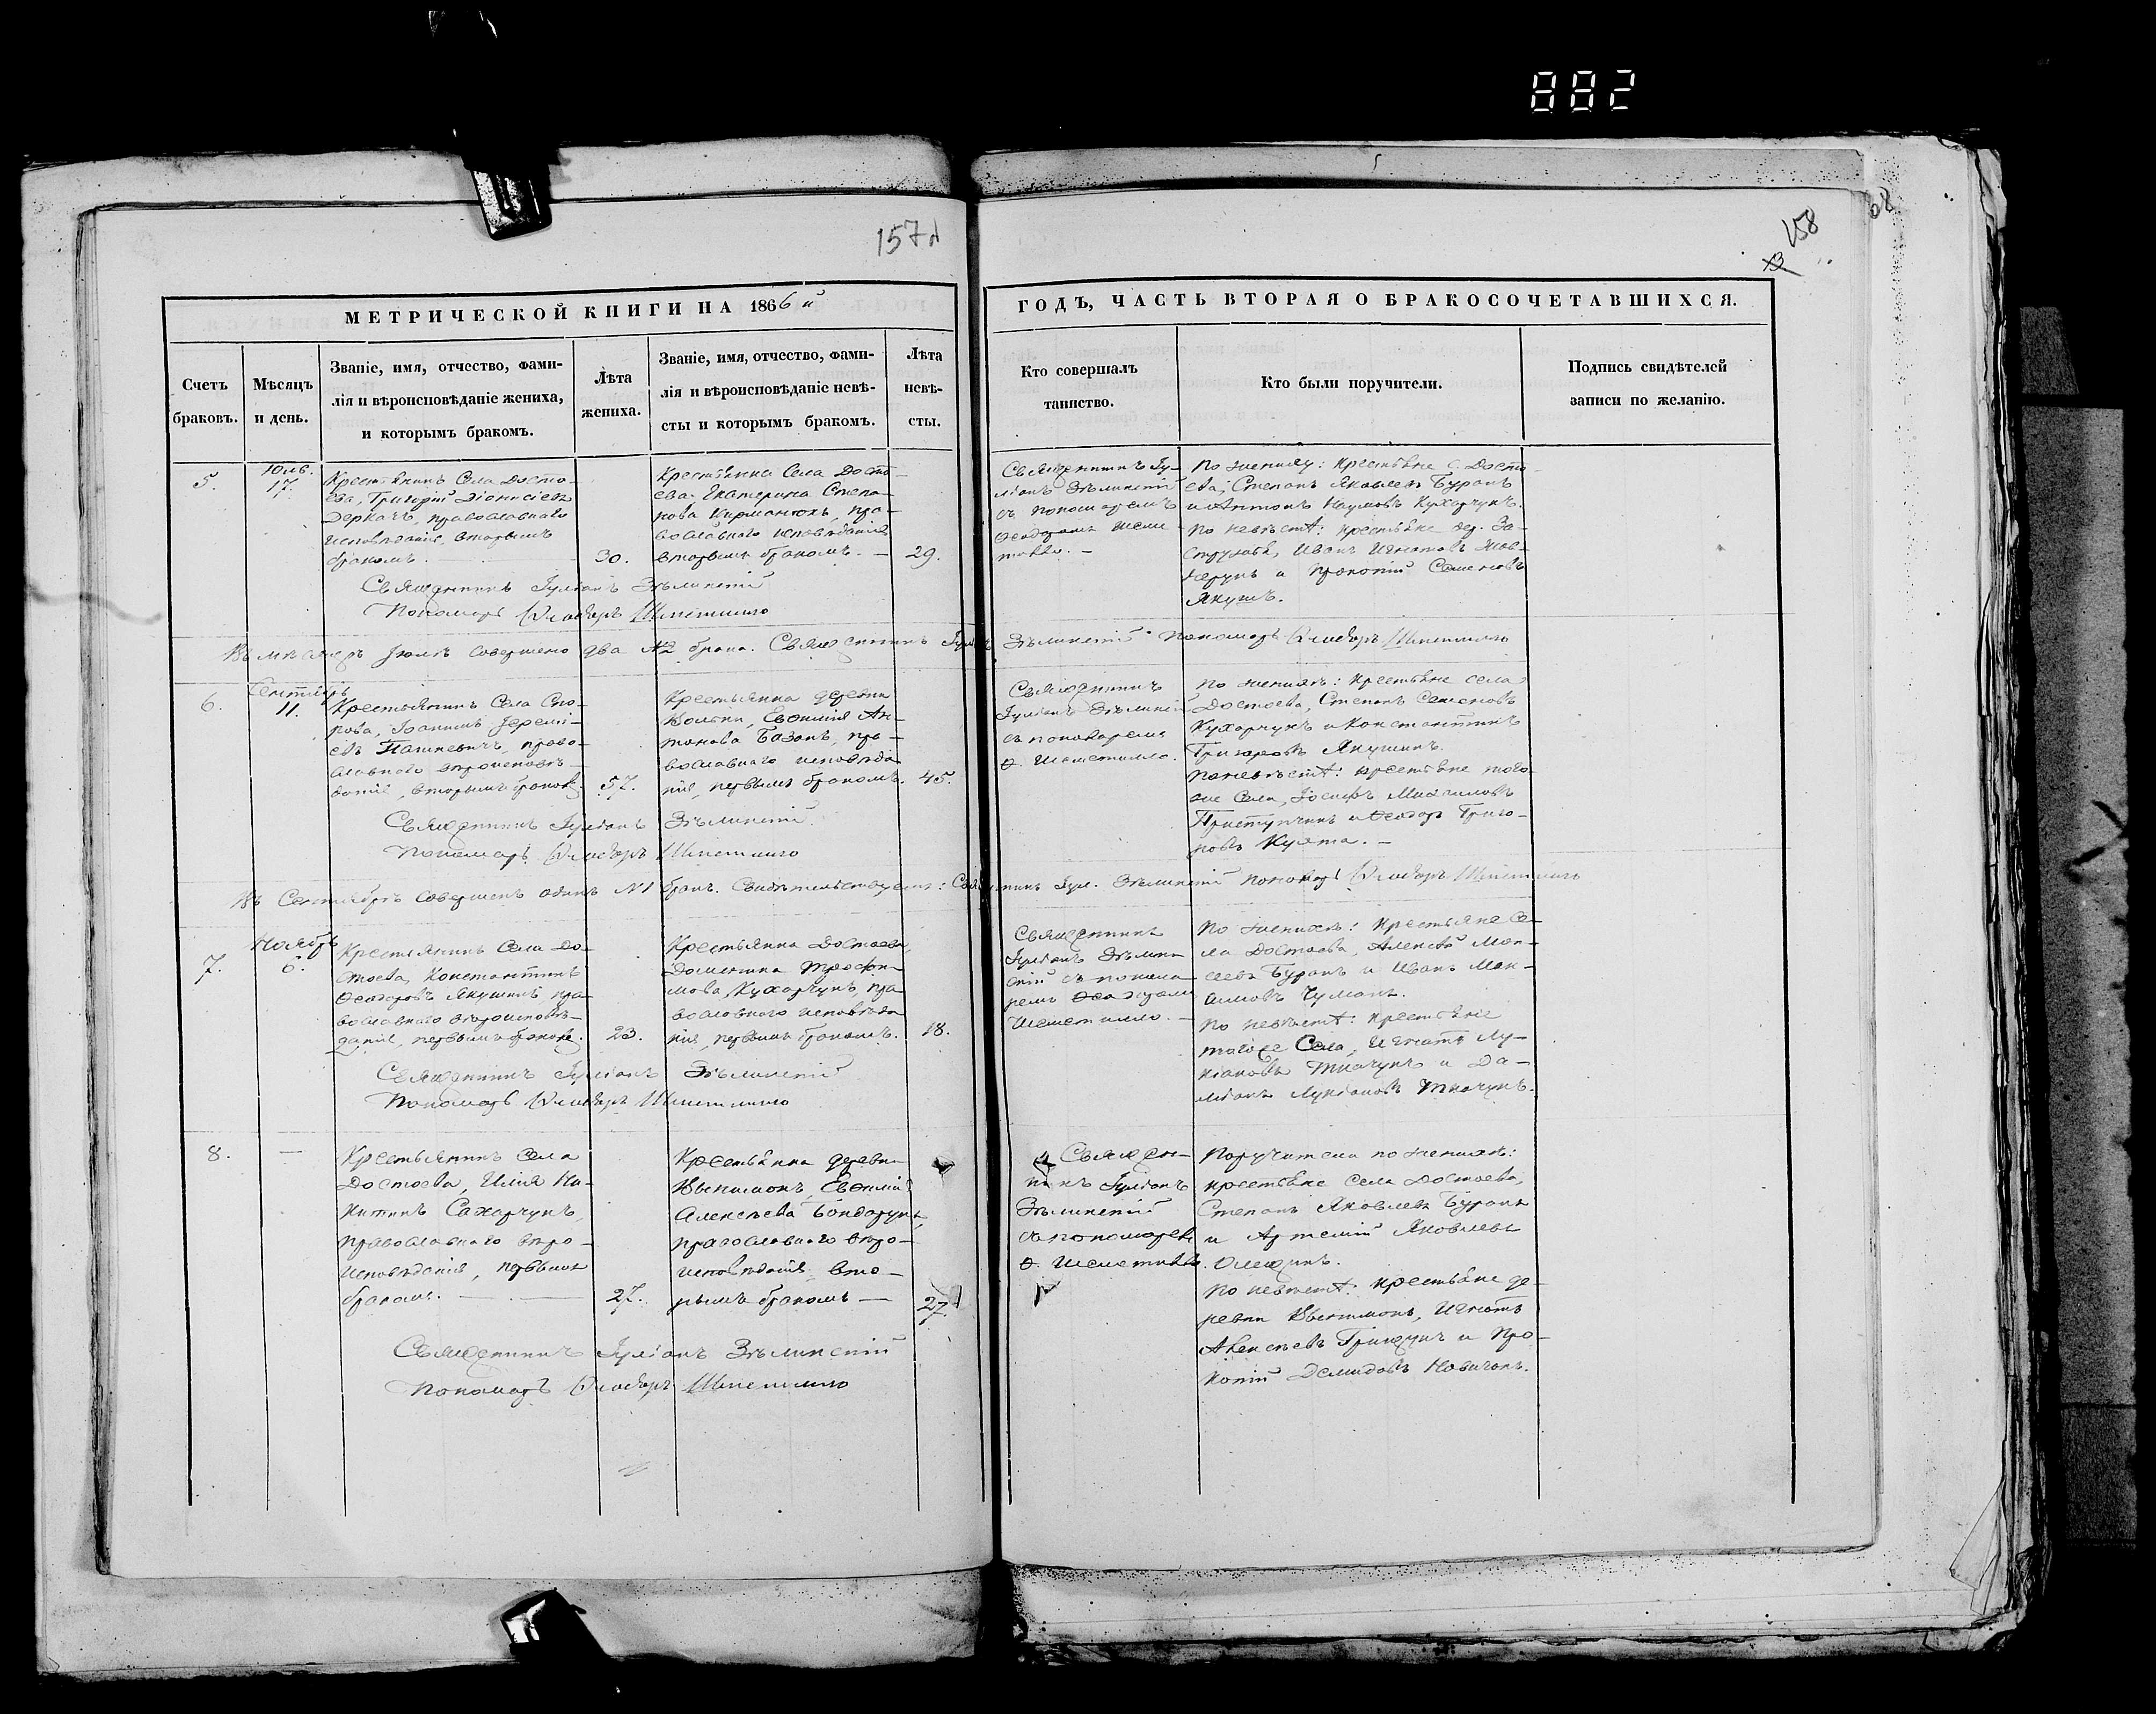 882
157
158
МЕТРИЧЕСКОЙ КНИГИ НА 1866 й
ГОДЪ, ЧАСТЬ ВТОРАЯ О БРАКОСОЧЕТАВШИХСЯ.
Счетъ
браковъ.
Мѣсяцъ
и день.
Званіе, имя, отчество, фами-
лія и вѣроисповѣданіе жениха,
и которымъ бракомъ.
Лѣта
жениха.
Званіе, имя, отчество, фами-
лія и вѣроисповѣданіе невѣ-
сты и которымъ бракомъ.
Лѣта
невѣ-
сты.
Кто совершалъ
таинство.
Кто были поручители.
Подпись свидѣтелей
записи по желанію.
5.
17.
Крестьянинъ Села Досто-
ева, Григорій Діонисіевъ
Деркачъ, православнаго
исповѣданія, вторымъ
бракомъ.
30.
Крестьянка Села Досто-
ева Екатерина Степа-
нова, пра-
вославнаго исповѣданія
вторымъ бракомъ. —
29.
Священникъ Іу-
ліанъ Зѣлинскій
съ пономаремъ
Ѳеодоромъ
По жениху: крестьяне с. Досто-
ева, Степанъ Яковлевъ Буракъ
и Антонъ Наумовъ Кухарчукъ.
По невѣстѣ: крестьяне дер. За-
стружья, Иванъ Игнатовъ
и Прокопій Семеновъ
Якушъ.
Священникъ Іуліанъ Зѣлинскій
Пономарь Ѳеодоръ
Въ мѣсяцѣ Іюлѣ совершено два №2 брака. Священникъ Іуліанъ Зѣлинскій Пономарь Ѳеодоръ
6.
Сентябрь
11.
Крестьянинъ Села Спо-
рова, Іоаннъ Іеремі-
евъ Пашкевичъ, право-
славнаго вѣроисповѣ-
данія, вторымъ бракомъ.
57.
Крестьянка деревни
Вольки, Евфимія Ан-
тонова Базанъ, пра-
вославнаго исповѣда-
нія, первымъ бракомъ.
45.
Священникъ
Іуліанъ Зѣлинскій
съ пономаремъ
Ѳ.
По женихѣ: крестьяне села
Достоева, Степанъ Семеновъ
Кухарчукъ и Константинъ
Григоровъ Якушикъ.
По невѣстѣ: крестьяне того-
же Села, Іосифъ Михаиловъ
и Ѳеодоръ Григо-
ровъ
Священникъ Іуліанъ Зѣлинскій
Пономарь Ѳеодоръ
Въ Сентябрѣ совершенъ одинъ №1 бракъ. Свидѣтельствуемъ: Священникъ Іул. Зѣлинскій пономарь Ѳеодоръ
7.
Ноябрь
6.
Крестьянинъ Села До-
стоева, Константинъ
Ѳеодоровъ Якушикъ, пра-
вославнаго вѣроисповѣ-
данія, первымъ бракомъ.
23.
Крестьянка Достоева,
Домникія Трофи-
мова, Кухарчукъ, пра-
вославнаго исповѣда-
нія, первымъ бракомъ.
18.
Священникъ
Іуліанъ Зѣлин-
скій съ понома-
ремъ Ѳеодоромъ
По женихѣ: Крестьяне Се-
ла Достоева, Алексѣй Мои-
сеевъ Буракъ и Иванъ Мак-
симовъ Чумакъ.
По невѣстѣ: крестьяне
тогоже Села, Игнатъ Лу-
кіановъ Ткачукъ и Да-
міанъ Лукіановъ Ткачукъ.
Священникъ Іуліанъ Зѣлинскій
Пономарь Ѳеодоръ
8.
—
Крестьянинъ села
Достоева, Илія Ни-
китинъ Сахарчукъ,
православнаго вѣро-
исповѣданія, первымъ
бракомъ. —
27.
Крестьянка деревни
Евфимія
Алексѣева Бондарукъ,
православнаго вѣро-
исповѣданія, вто-
рымъ бракомъ —
27.
Священ-
никъ Іуліанъ
Зѣлинскій
съ пономаремъ
Ѳ.
Поручители по женихѣ:
крестьяне села Достоева,
Степанъ Яковлевъ Буракъ
и Артемій Яковлевъ
По невѣстѣ: крестьяне де-
ревни Игнатъ
Алексѣевъ и Про-
копій Демидовъ Новичокъ.
Священникъ Іуліанъ Зѣлинскій
Пономарь Ѳеодоръ